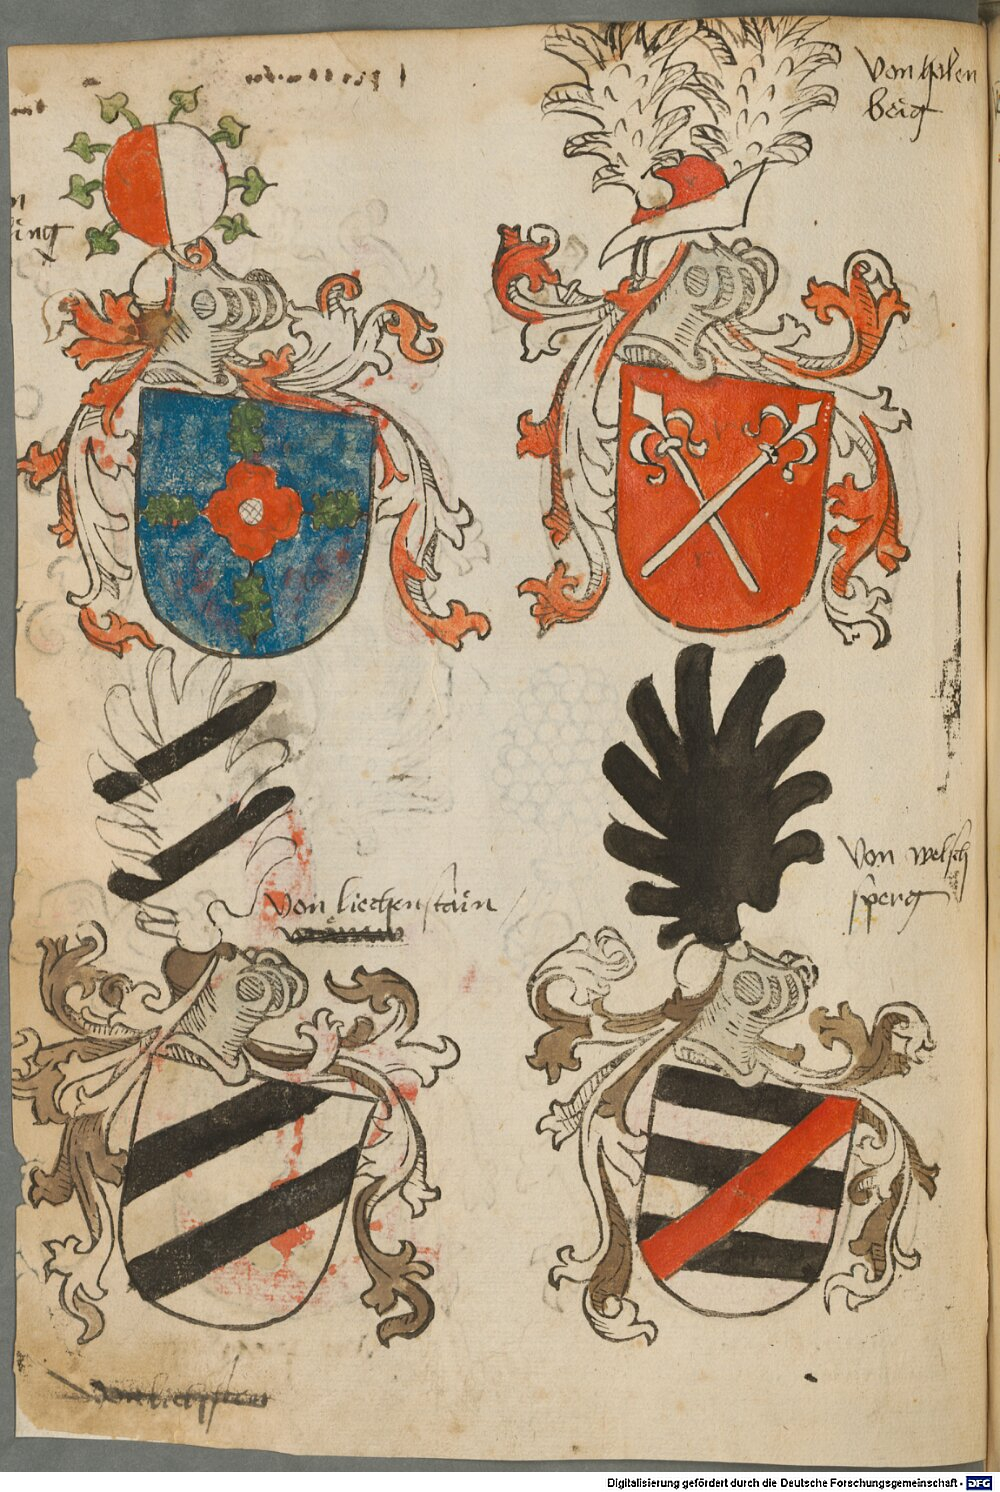 von halen
berg
ing
von liechenstain
von welsch
sperg
Digitalisierung gefördert durch die Deutsche Forschungsgemeinschaft - DFG